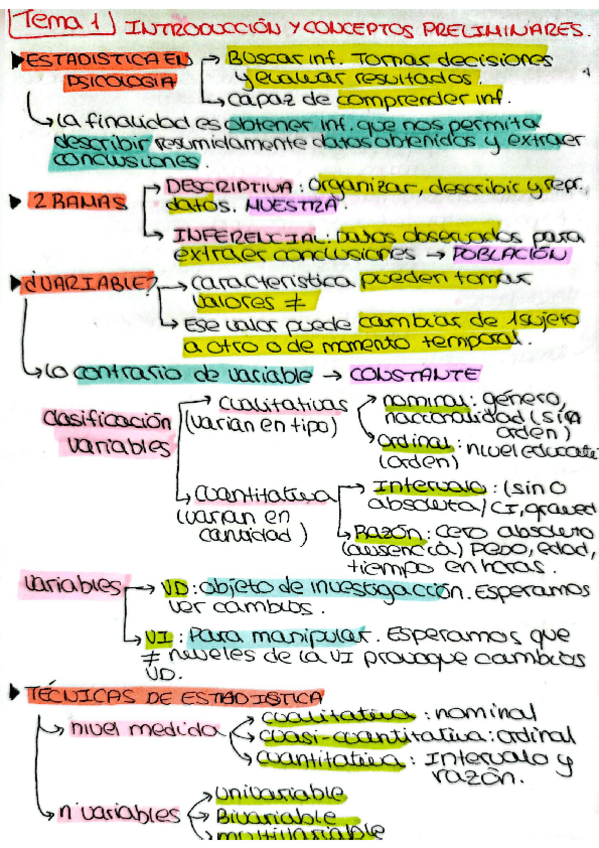 Tema 1 INTRODUCCIÓN Y CONCEPTOS PRELIMINARES.
ESTADISTICA EN PSICOLOGIA → Buscar inf. Tomar decisiones
y evaluar resultados.
→ capaz de comprender inf.
→ La finalidad es obtener inf. que nos permita
describir resumidamente datos obtenidos y extraer
conclusiones.
2 RAMAS → DESCRIPTIVA: Organizar, describir y repr.
datos. MUESTRA.
→ INFERENCIAL: Datos observados para
extraer conclusiones → POBLACIÓN
¿VARIABLE? → característica pueden tomar
valores ≠
→ Ese valor puede cambiar de 1 sujeto
a otro o de momento temporal.
→ Lo contrario de variable → CONSTANTE
clasificación variables
→ Cualitativas (varian en tipo)
→ nominal: género,
nacionalidad (sin
orden)
→ Ordinal: nivel educati
(orden)
→ Cuantitativa (varian en cantidad)
→ Intervalo: (sin 0
absoluta / CI, graved
→ Razón: Cero absoluto
(ausencia) peso, edad,
tiempo en horas.
Variables → VD: objeto de investigacción. Esperamos
ver cambios.
→ VI: Para manipular. Esperamos que
≠ niveles de la VI provoque cambios
VD.
TÉCNICAS DE ESTADISTICA
→ nivel medida → cualitativa: nominal
→ cuasi-cuantitativa: ordinal
→ cuantitativa: Intervalo y
razón.
→ nº variables → univariable
→ Bivariable
→ multivariable